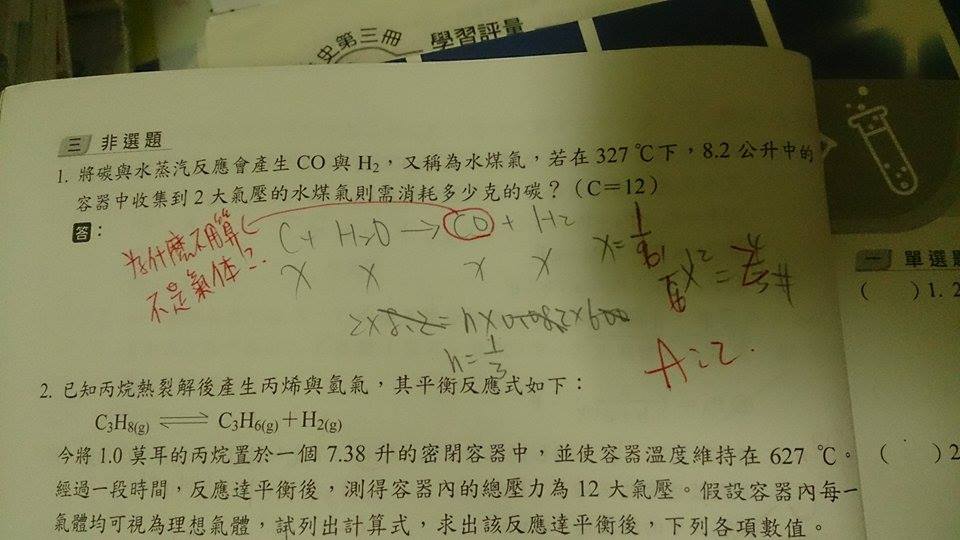 史第三冊 學習評量
三 非選題
1. 將碳與水蒸汽反應會產生 CO 與 H₂，又稱為水煤氣，若在 327 ℃下，8.2 公升中的
容器中收集到 2 大氣壓的水煤氣則需消耗多少克的碳？（C＝12）
答：
為什麼不用算
不是氣體？
C + H₂O → CO + H₂
x x x x
x = 1/9
2×8.2 = n×0.082×600
n = 1/3
A:2.
2. 已知丙烷熱裂解後產生丙烯與氫氣，其平衡反應式如下：
C₃H₈(g) ⇌ C₃H₆(g)＋H₂(g)
今將 1.0 莫耳的丙烷置於一個 7.38 升的密閉容器中，並使容器溫度維持在 627 ℃。
經過一段時間，反應達平衡後，測得容器內的總壓力為 12 大氣壓。假設容器內每一
氣體均可視為理想氣體，試列出計算式，求出該反應達平衡後，下列各項數值。
一 單選題
（ ）1. 2
（ ）2